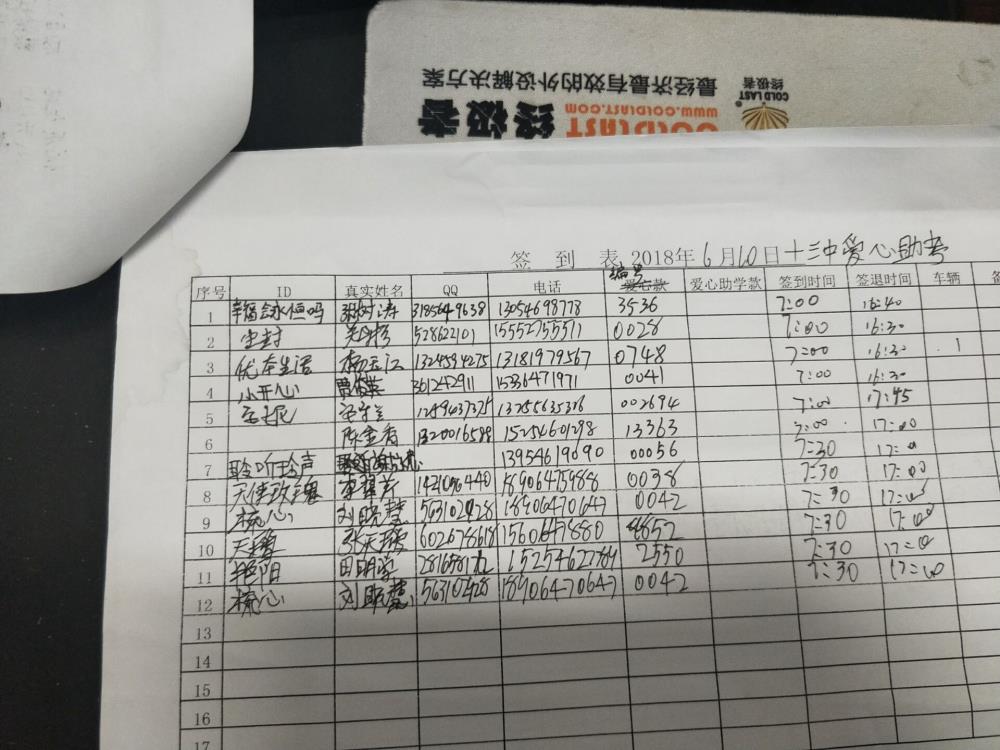 最经济最有效的外设解决方案
终极者
COLDLAST
WWW.COLDLAST.COM
终极者
COLD LAST
签 到 表 2018年6月10日十三中爱心助考
编号
序号 ID 真实姓名 QQ 电话 爱心款 爱心助学款 签到时间 签退时间 车辆
1 幸福会永恒吗 13054698778 3536 7:00 16:40
2 尘封 528622101 15552755571 0028 7:00 16:30
3 优本生活 杨玉江 1324594275 13181979567 0748 7:00 16:30
4 小开心 361242911 15336471971 0041 7:00 16:30
5 1259437375 13255635326 002694 7:00 17:45
6 陈金香 1320016588 15254601298 13363 7:00 17:00
7 聆听铃声 13954619090 00056 7:30 17:00
8 天使玫瑰 1421096440 18906475988 0038 7:30 17:00
9 梳心 刘晓慧 563102428 18906470647 0042 7:30 17:00
10 天籁 602678618 15606478880 4852 7:30 17:00
11 艳阳 田明学 15254622784 2550 7:30 17:00
12 梳心 刘晓慧 563102428 18906470647 0042 7:30 17:00
13
14
15
16
17